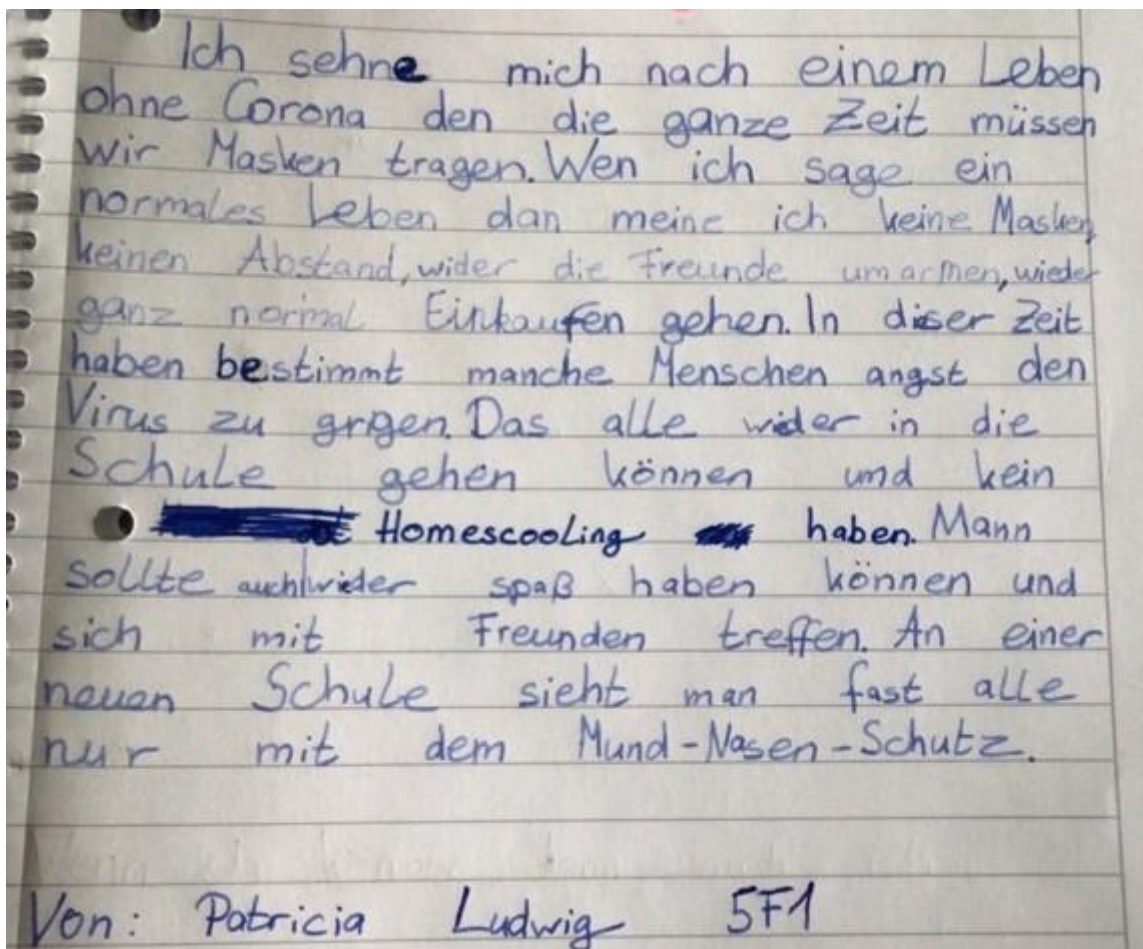 Ich sehne mich nach einem Leben
ohne Corona den die ganze Zeit müssen
wir Masken tragen. Wen ich sage ein
normales Leben dan meine ich keine Masken,
keinen Abstand, wider die Freunde umarmen, wieder
ganz normal Einkaufen gehen. In dieser Zeit
haben bestimmt manche Menschen angst den
Virus zu grigen. Das alle wider in die
Schule gehen können und kein
Homescooling haben. Mann
sollte auch wider spaß haben können und
sich mit Freunden treffen. An einer
neuen Schule sieht man fast alle
nur mit dem Mund-Nasen-Schutz.
Von: Patricia Ludwig 5F1